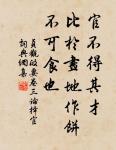 官不得其才
比於畫地作餅
不可食也
貞觀政要卷三論擇官
詞典網集